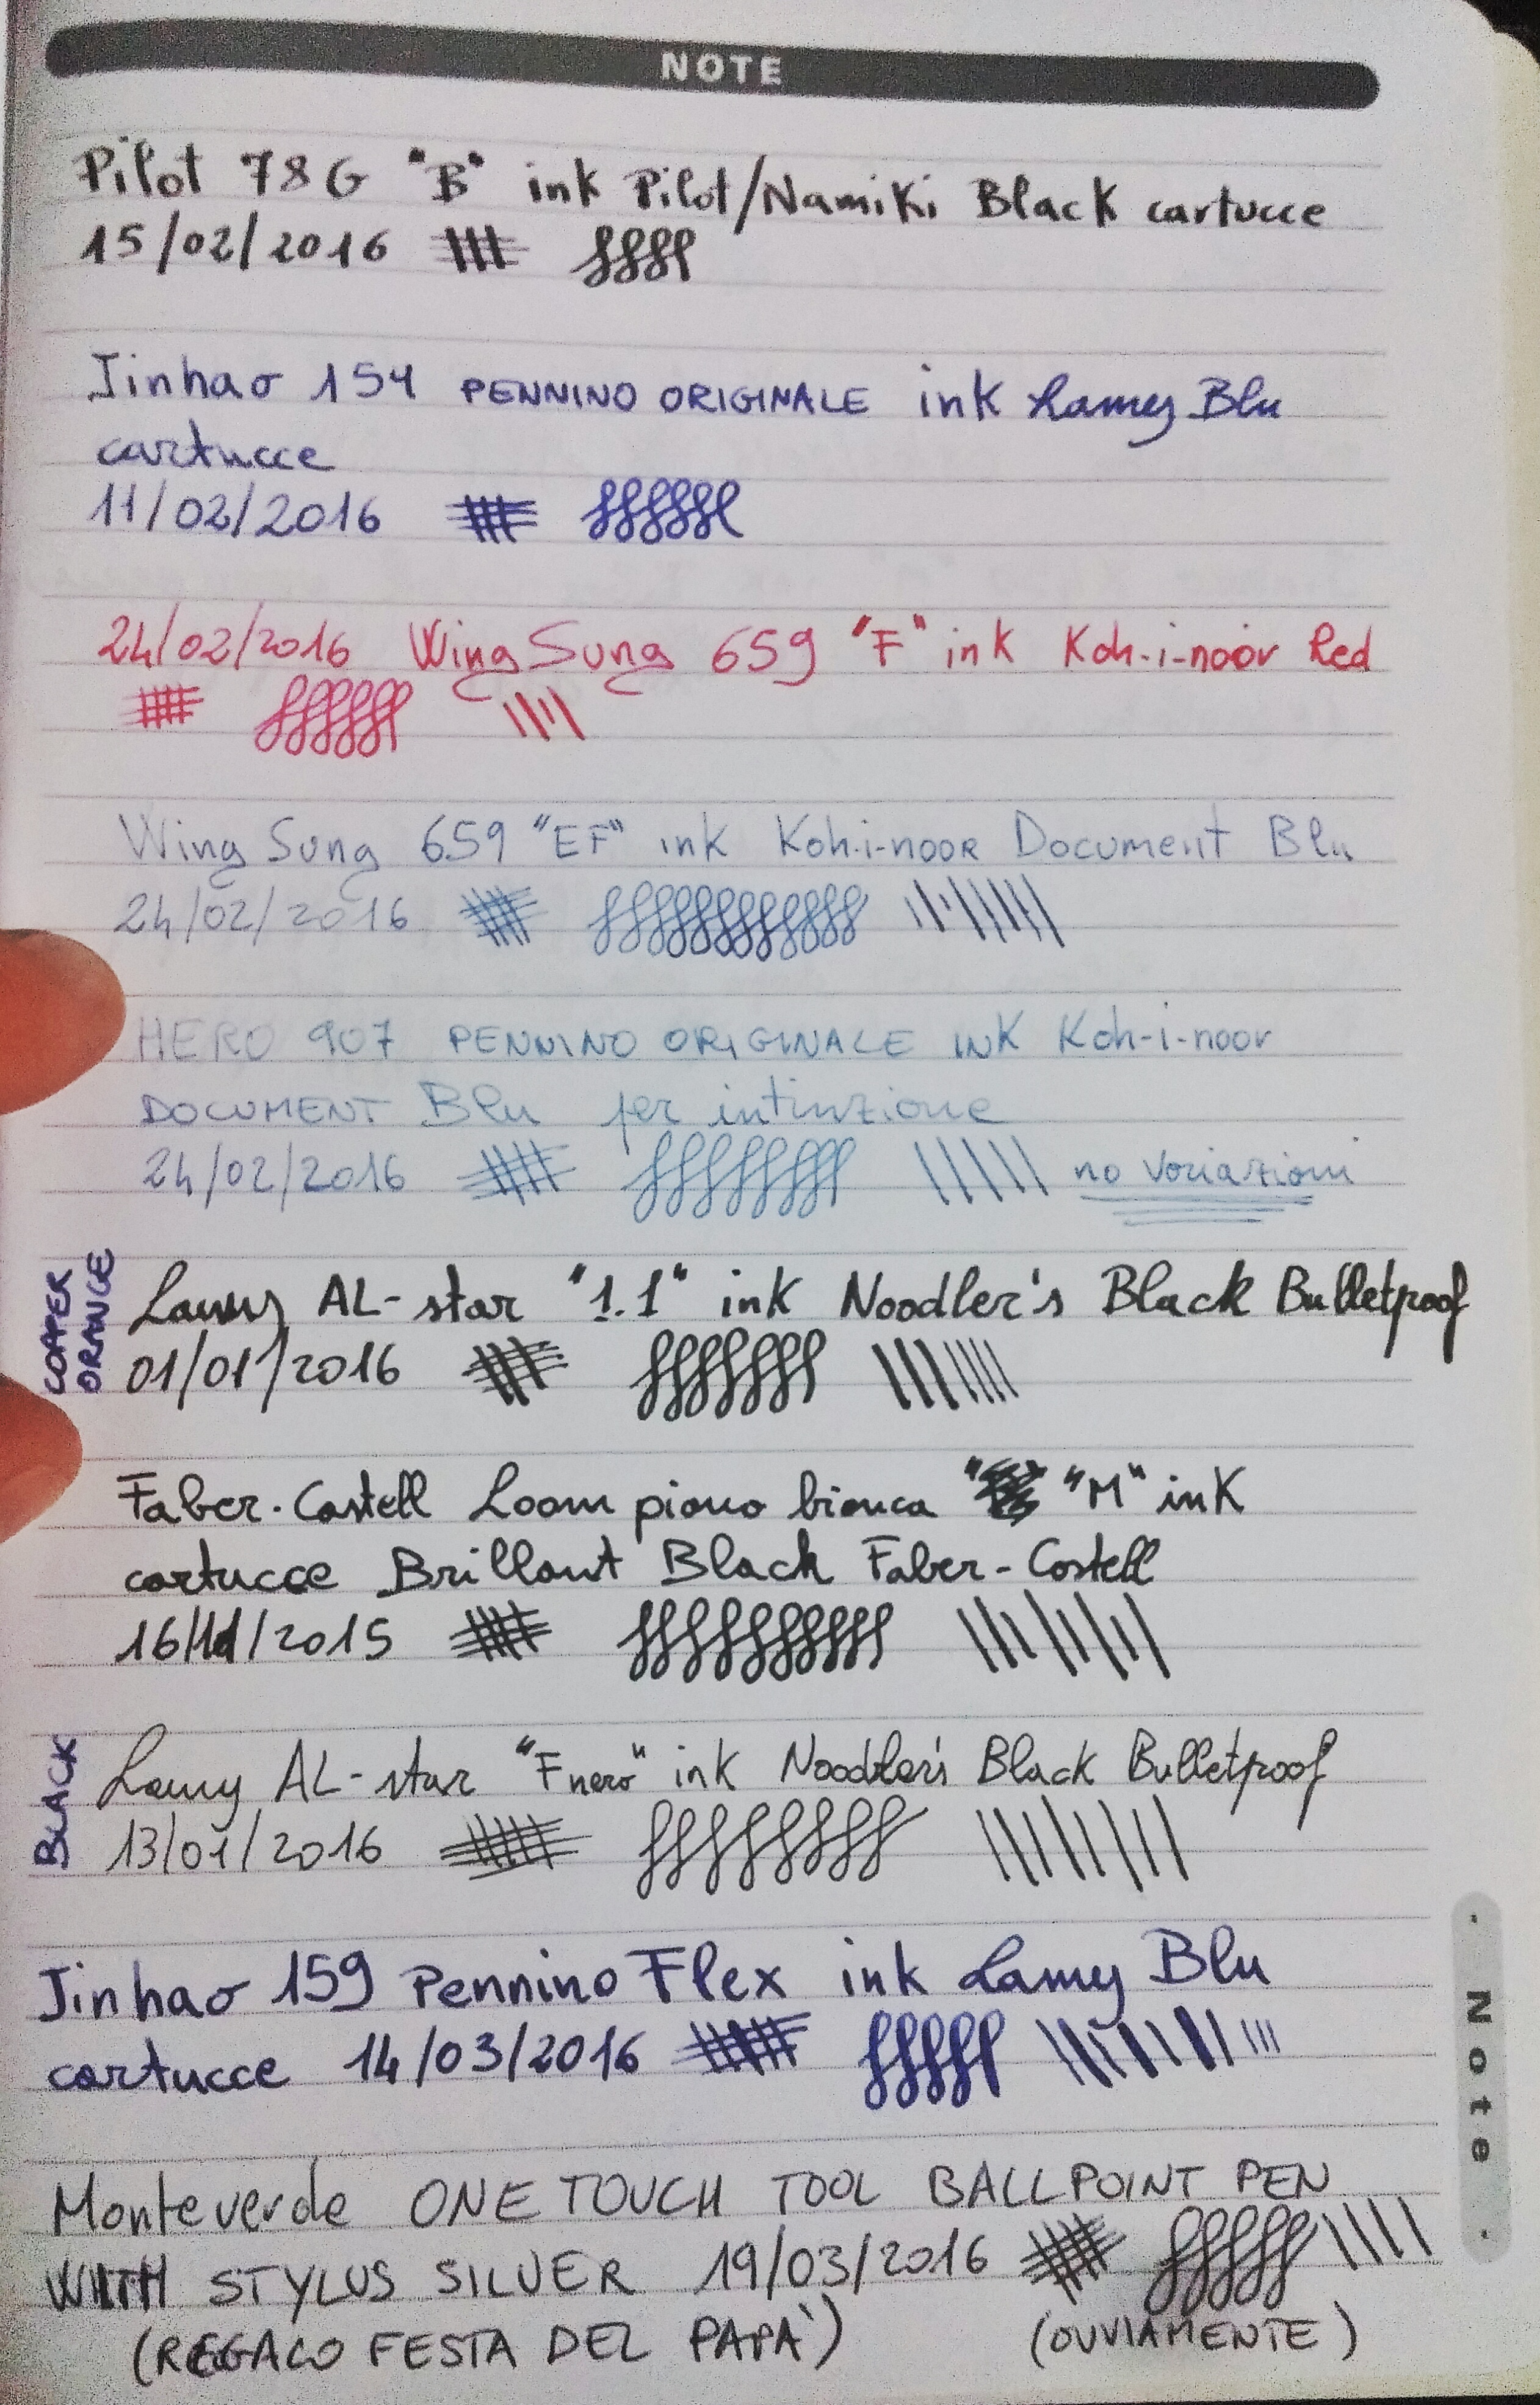 NOTE
Pilot 78G "B" ink Pilot/Namiki Black cartucce
15/02/2016
Jinhao 154 PENNINO ORIGINALE ink Lamy Blu
cartucce
11/02/2016
24/02/2016 Wing Sung 659 "F" ink Koh-i-noor Red
Wing Sung 659 "EF" ink Koh-i-noor Document Blu
24/02/2016
HERO 907 PENNINO ORIGINALE INK Koh-i-noor
DOCUMENT Blu per intinzione
24/02/2016 no variazioni
COPPER
ORANGE
Lamy AL-star "1.1" ink Noodler's Black Bulletproof
01/01/2016
Faber-Castell Loom piano bianca "M" ink
cartucce Brillant Black Faber-Castell
16/11/2015
BLACK
Lamy AL-star "F nero" ink Noodler's Black Bulletproof
13/01/2016
Jinhao 159 Pennino Flex ink Lamy Blu
cartucce 14/03/2016
Note
Monteverde ONE TOUCH TOOL BALLPOINT PEN
WITH STYLUS SILVER 19/03/2016
(REGALO FESTA DEL PAPÀ) (OVVIAMENTE)